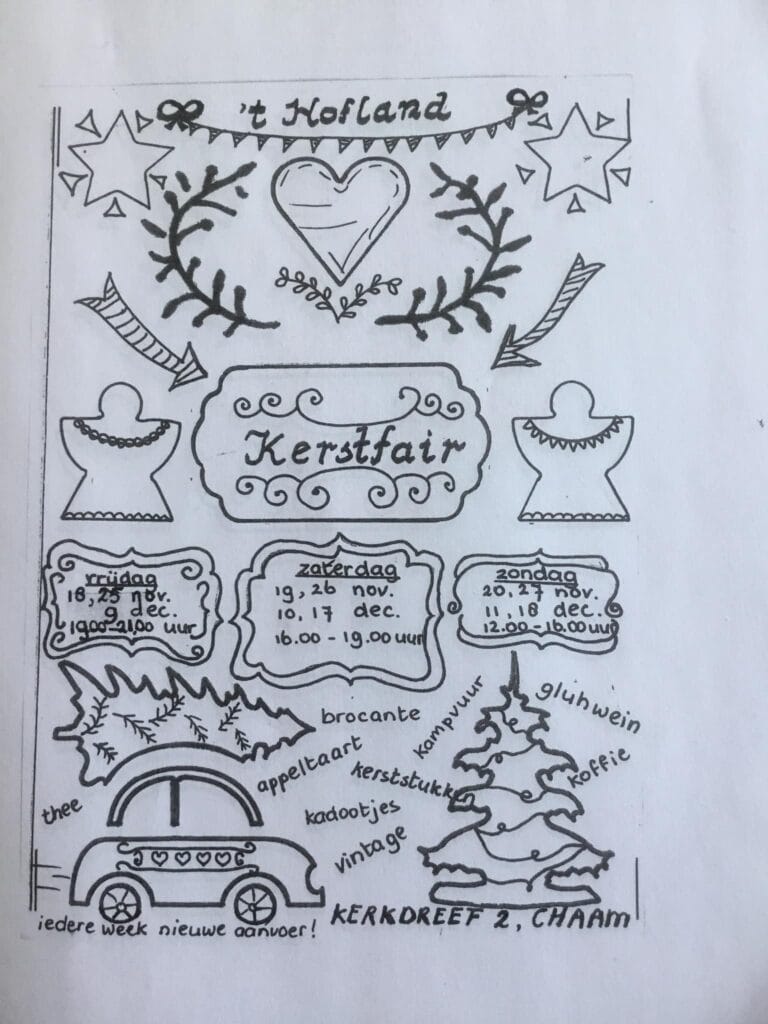 't Hofland
Kerstfair
vrijdag
18, 25 nov.
9 dec.
19.00-21.00 uur
zaterdag
19, 26 nov.
10, 17 dec.
16.00 - 19.00 uur
zondag
20, 27 nov.
11, 18 dec.
12.00-16.00 uur
brocante
kampvuur
gluhwein
appeltaart
kerststukken
koffie
thee
kadootjes
vintage
iedere week nieuwe aanvoer!
KERKDREEF 2, CHAAM